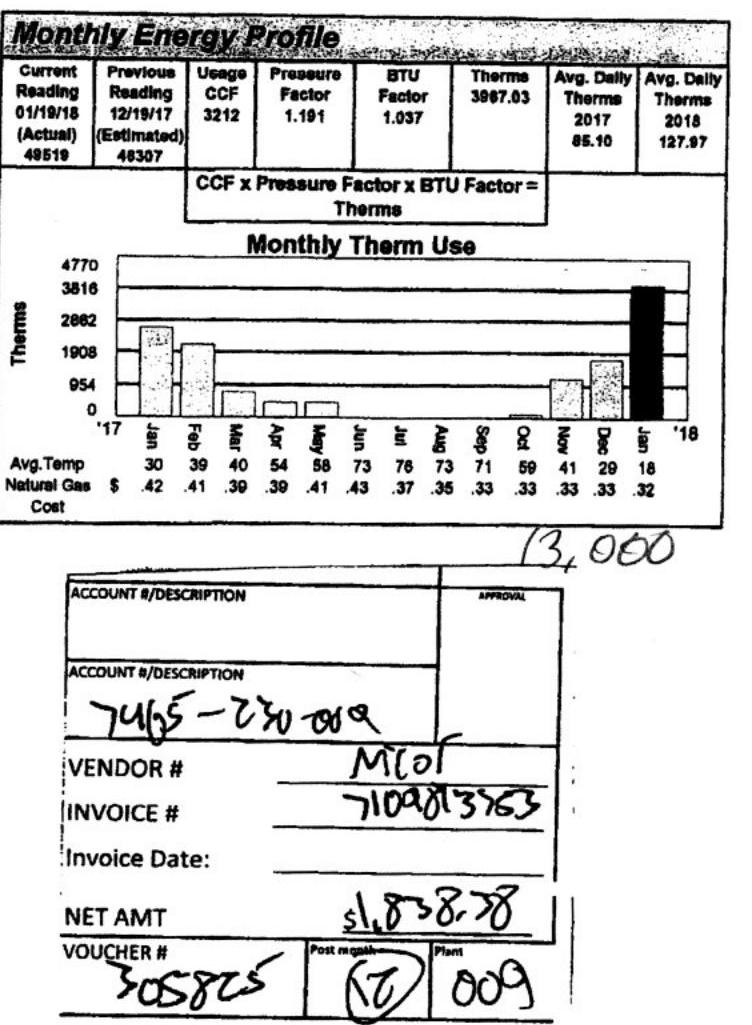 Monthly Energy Profile
Current Reading 01/19/18 (Actual) 49519
Previous Reading 12/19/17 (Estimated) 46307
Usage CCF 3212
Pressure Factor 1.191
BTU Factor 1.037
Therms 3967.03
Avg. Daily Therms 2017 85.10
Avg. Daily Therms 2018 127.97
CCF x Pressure Factor x BTU Factor =
Therms
Monthly Therm Use
Therms
4770
3816
2862
1908
954
0
'17 Jan Feb Mar Apr May Jun Jul Aug Sep Oct Nov Dec Jan '18
Avg.Temp 30 39 40 54 58 73 76 73 71 59 41 29 18
Natural Gas Cost $ .42 .41 .39 .39 .41 .43 .37 .35 .33 .33 .33 .33 .32
13,000
ACCOUNT #/DESCRIPTION
APPROVAL
ACCOUNT #/DESCRIPTION
7465-230-009
VENDOR #
INVOICE # 7109813363
Invoice Date:
NET AMT $1,838.38
VOUCHER # 305825
Post month 12
Plant 009